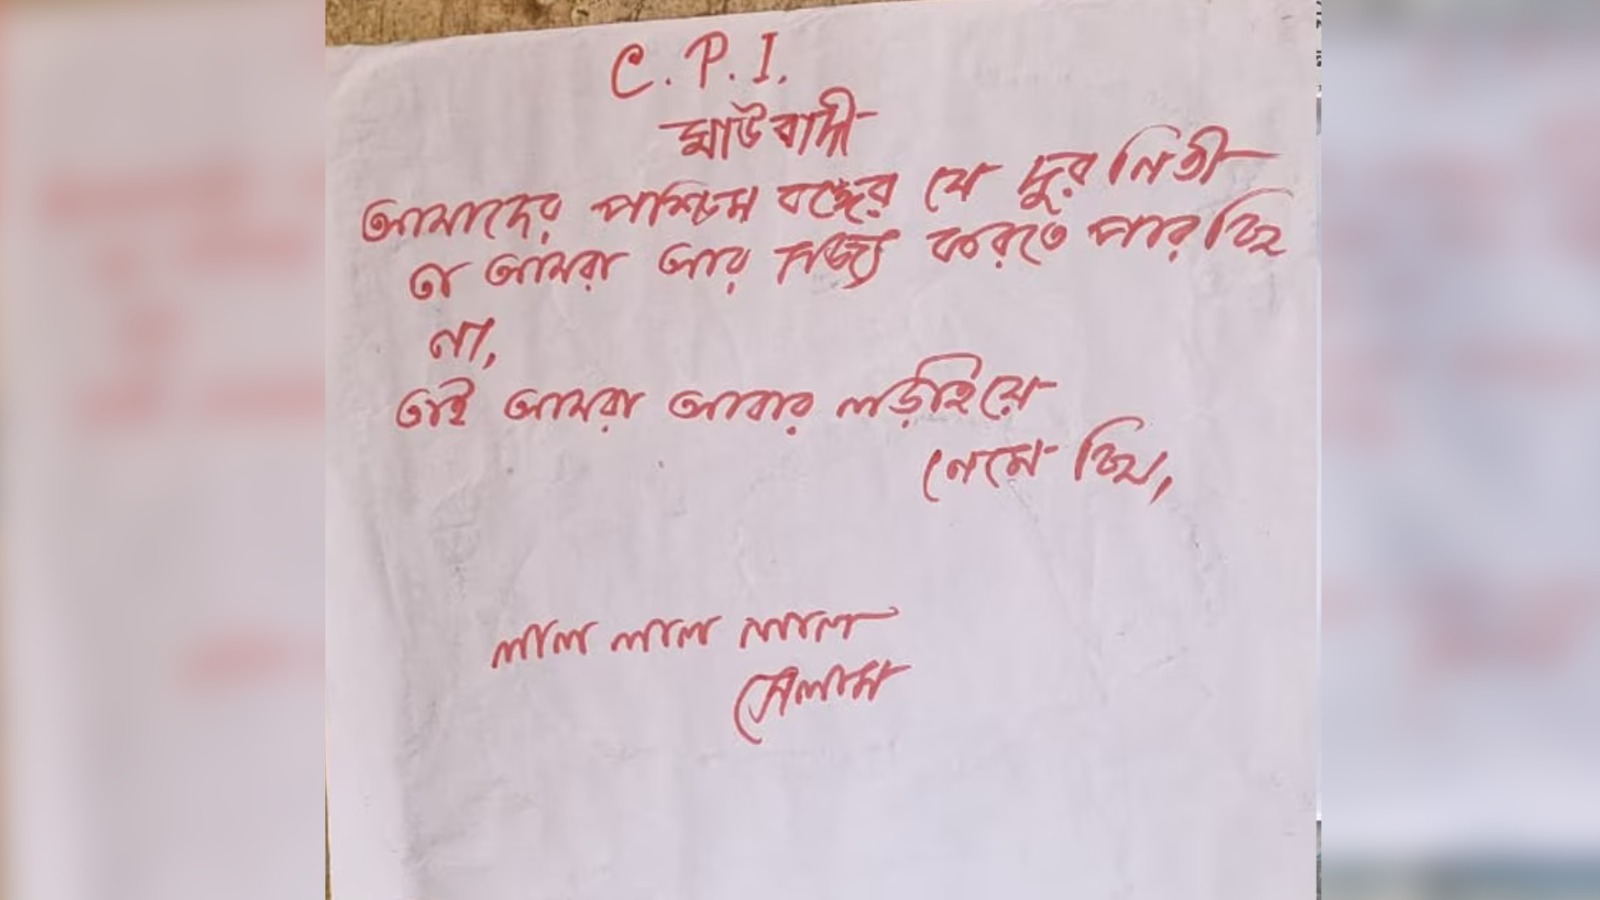 C.P.I.
মাউবাদী
আমাদের পশ্চিম বঙ্গের যে দুরনিতী
তা আমরা আর সজ্য করতে পারছি
না,
তাই আমরা আবার লড়াইয়ে
নেমে ছি,
লাল লাল লাল
সেলাম